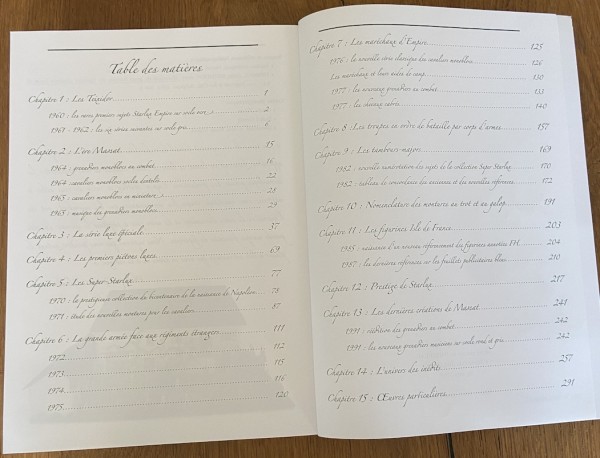 Table des matières
Chapitre 1 : Les Teixidor 1
1960 : les onze premiers sujets Starlux Empire sur socle noir 2
1961 - 1962 : les six séries suivantes sur socle gris 6
Chapitre 2 : L'ère Massat 15
1964 : grenadiers monoblocs au combat 16
1964 : cavaliers monoblocs socles dentelle 22
1965 : cavaliers monoblocs en miniature 28
1965 : musique des grenadiers monoblocs 29
Chapitre 3 : La série luxe spéciale 37
Chapitre 4 : Les premiers piétons luxes 69
Chapitre 5 : Les Super-Starlux 77
1970 : la prestigieuse collection du bicentenaire de la naissance de Napoléon 78
1971 : étude des nouvelles montures pour les cavaliers 87
Chapitre 6 : La grande armée face aux régiments étrangers 111
1972 112
1973 115
1974 116
1975 120
Chapitre 7 : Les maréchaux d'Empire 125
1976 : la nouvelle série classique des cavaliers monoblocs 126
Les maréchaux et leurs aides de camp 130
1977 : les nouveaux grenadiers au combat 133
1977 : les chevaux cabrés 140
Chapitre 8 : Les troupes en ordre de bataille par corps d'armes 157
Chapitre 9 : Les tambours-majors 169
1982 : nouvelle numérotation des sujets de la collection Super Starlux 170
1982 : tableau de concordance des anciennes et des nouvelles références 172
Chapitre 10 : Nomenclature des montures au trot et au galop 191
Chapitre 11 : Les figurines Ile de France 203
1985 : naissance d'un nouveau référencement des figurines montées FH 204
1987 : les dernières références sur les feuillets publicitaires bleus 210
Chapitre 12 : Prestige de Starlux 217
Chapitre 13 : Les dernières créations de Massat 241
1991 : réédition des grenadiers au combat 242
1991 : les nouveaux grenadiers musiciens sur socle rond et gris 242
Chapitre 14 : L'univers des inédits 257
Chapitre 15 : Œuvres particulières 291